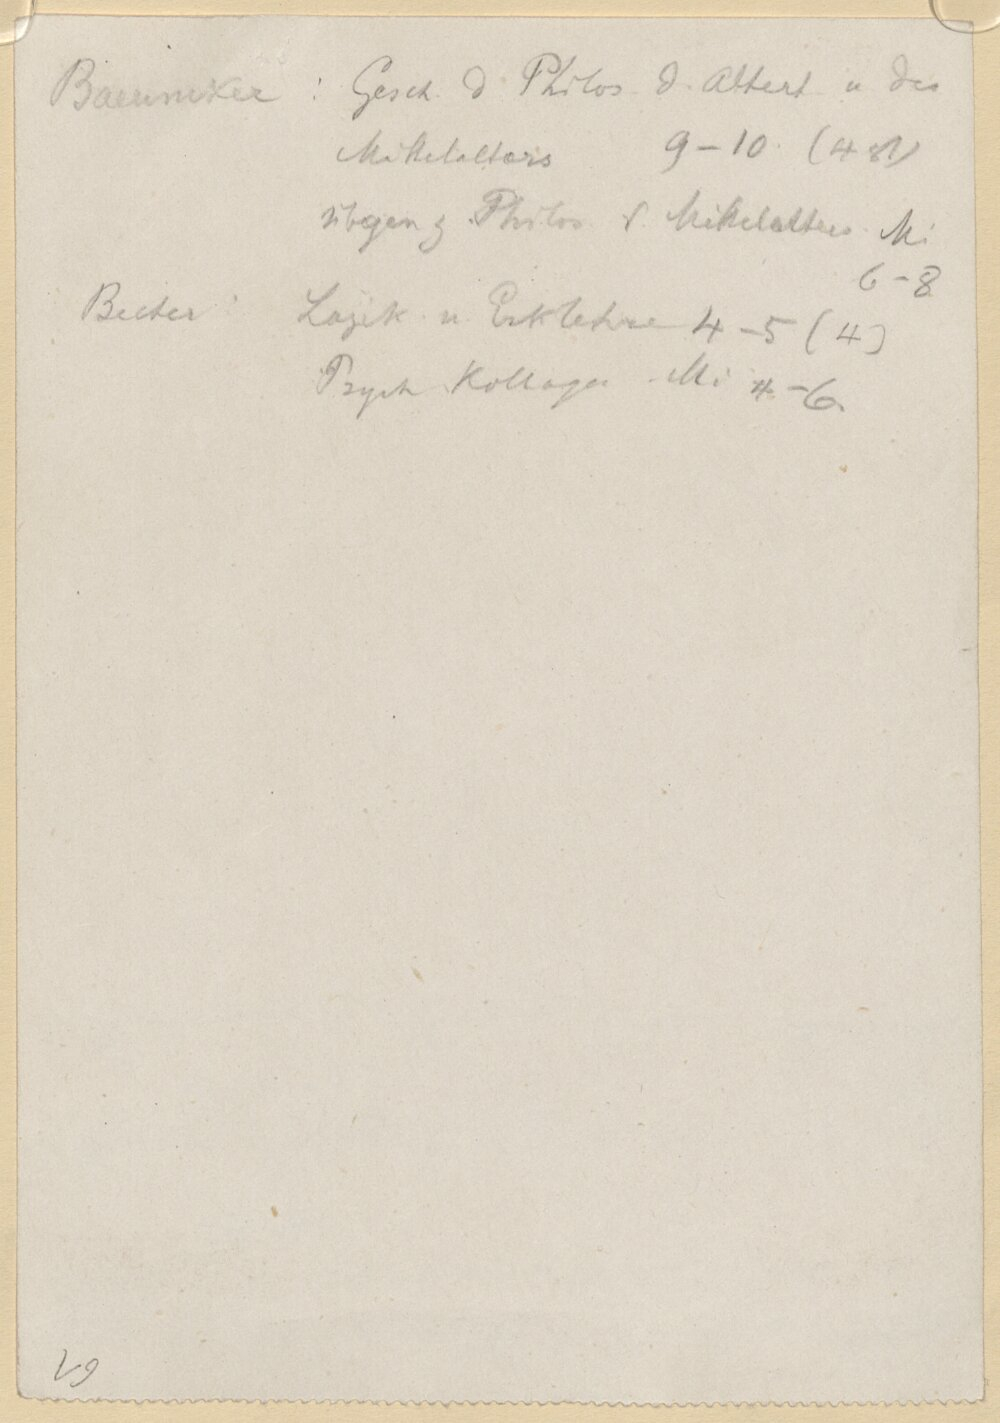 Baeumker : Gesch. d Philos. d. Altert. u des
Mittelalters 9-10. (4 st)
übgen z. Philos. d. Mittelalters Mi
6-8
Becher : Logik u. Erklehre 4-5 (4)
Psych Kolloqu Mi 4-6.